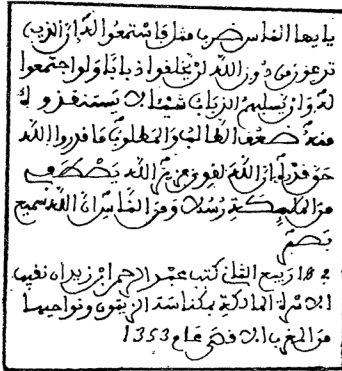 يايها الناس ضرب مثل فاستمعوا له إن الذين
تدعون من دون الله لن يخلقوا ذبابا ولو اجتمعوا
له وإن يسلبهم الذباب شيئا لا يستنقذوه
منه ضعف الطالب والمطلوب ما قدروا الله
حق قدره إن الله لقوي عزيز الله يصطفي
من الملئكة رسلا ومن الناس إن الله سميع
بصير
في 18 ربيع الثاني كتب عبد الرحمن بن زيدان نقيب
الأسرة المالكية بمكناسة الزيتون ونواحيها
من المغرب الأقصى عام 1353